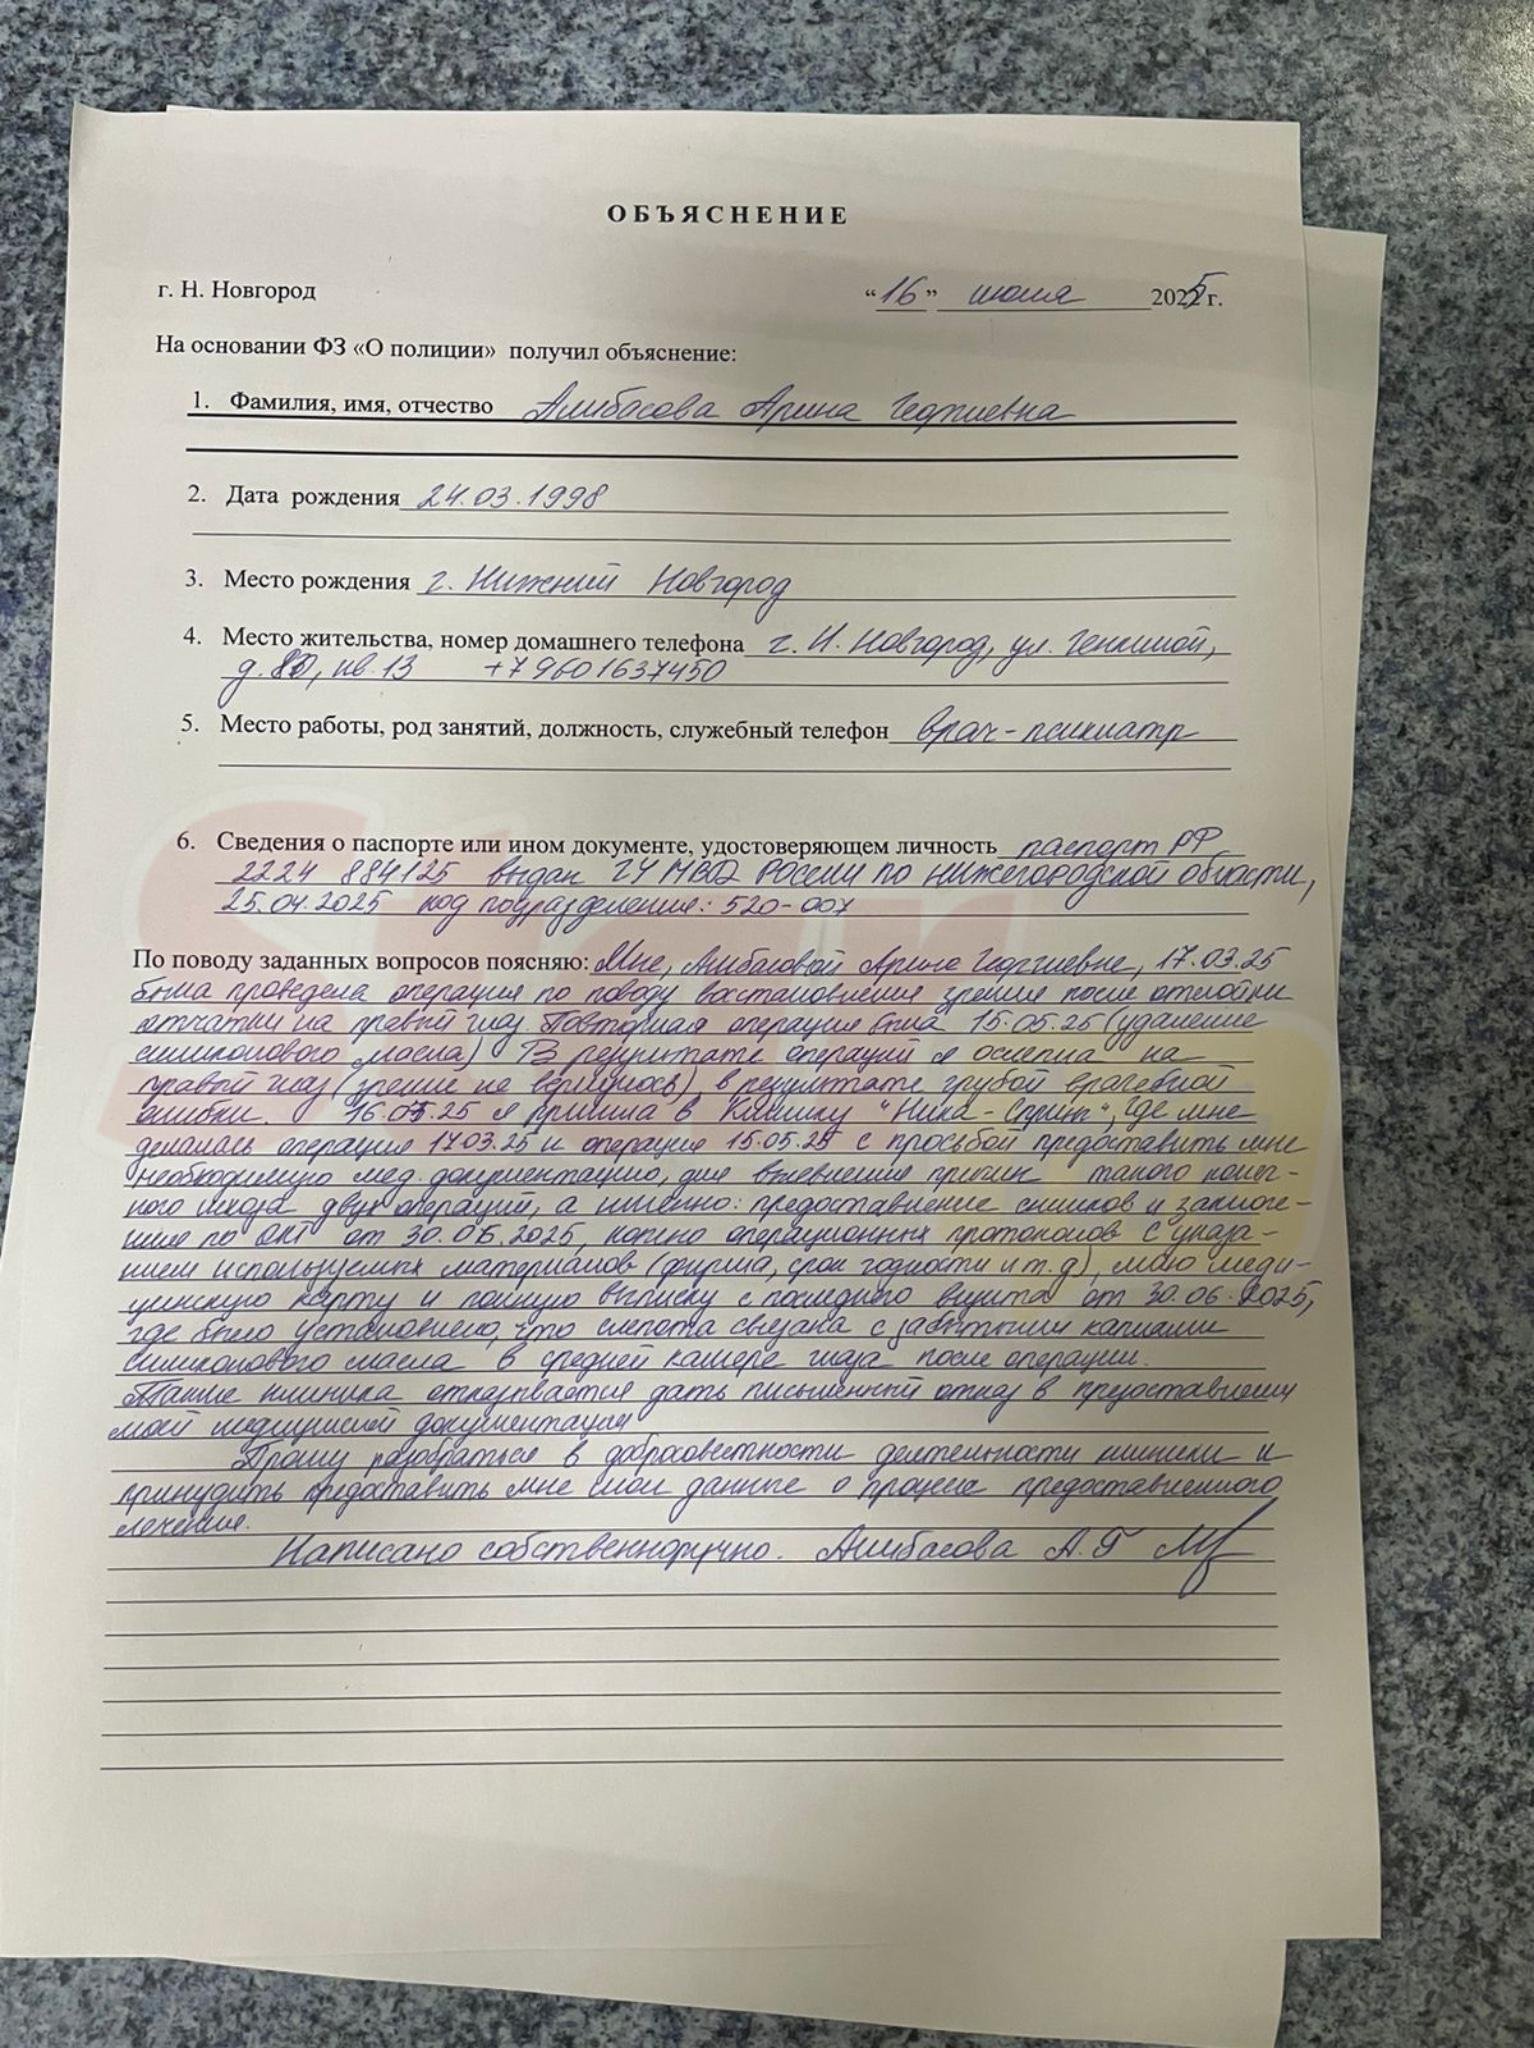 ОБЪЯСНЕНИЕ
г. Н. Новгород “16” июля 2025 г.
На основании ФЗ «О полиции» получил объяснение:
1. Фамилия, имя, отчество Алибасова Арина Георгиевна
2. Дата рождения 24.03.1998
3. Место рождения г. Нижний Новгород
4. Место жительства, номер домашнего телефона г. Н. Новгород, ул. Генкиной,
кв. 13 +79601637450
5. Место работы, род занятий, должность, служебный телефон врач-психиатр
6. Сведения о паспорте или ином документе, удостоверяющем личность паспорт РФ
2224 884125 выдан ГУ МВД России по нижегородской области,
25.04.2025 код подразделения: 520-007
По поводу заданных вопросов поясняю: Мне, Алибасовой Арине Георгиевне, 17.03.25
была проведена операция по поводу восстановления зрения после отслойки
сетчатки на правый глаз. Повторная операция была 15.05.25 (удаление
силиконового масла) В результате операций я ослепла на
правый глаз (зрение не вернулось), в результате грубой врачебной
ошибки. 16.07.25 я пришла в Клинику "Ника-Спринг", где мне
делалась операция 17.03.25 и операция 15.05.25 с просьбой предоставить мне
необходимую мед. документацию, для выявления причин такого
исхода двух операций, а именно: предоставление снимков и заключе-
ния по ОКТ от 2025, копию операционных протоколов с указа-
нием используемых материалов (фирма, срок годности и т.д), мою меди-
цинскую карту и полную выписку с последнего визита от 30.06.2025,
где было установлено, что слепота связана с забытыми каплями
силиконового масла в средней камере глаза после операции.
Также клиника отказывается дать письменный отказ в предоставлении
моей медицинской документации
Прошу разобраться в добросовестности деятельности клиники и
принудить предоставить мне мои данные о процессе предоставленного
лечения.
Написано собственноручно. Алибасова А.Г